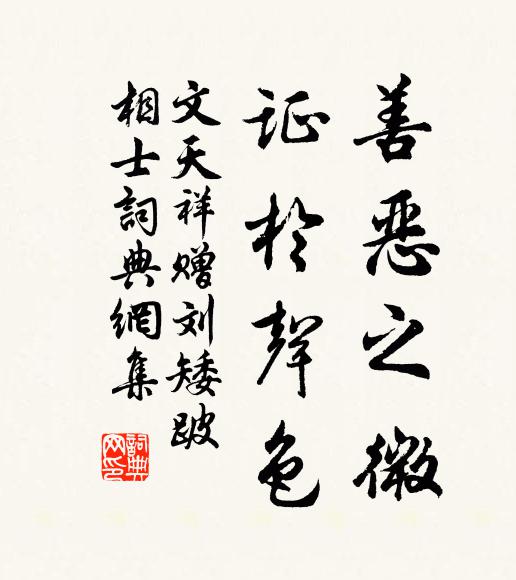 善惡之微
証於聲色
文天祥赠刘矮跛
相士詞典網集
詞典网印